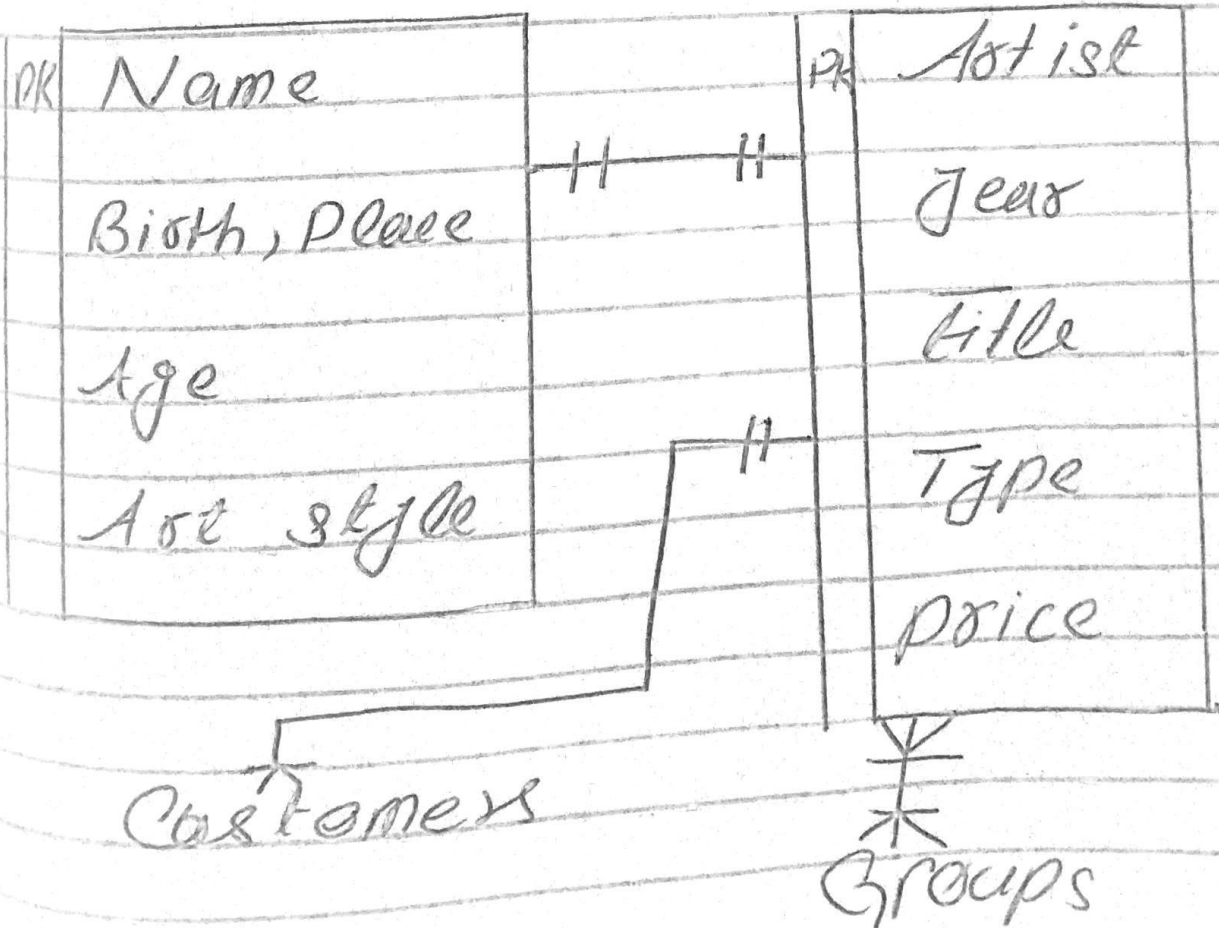 PK Name
Birth, Place
Age
Art style
PK Artist
year
title
Type
price
Customers
Groups